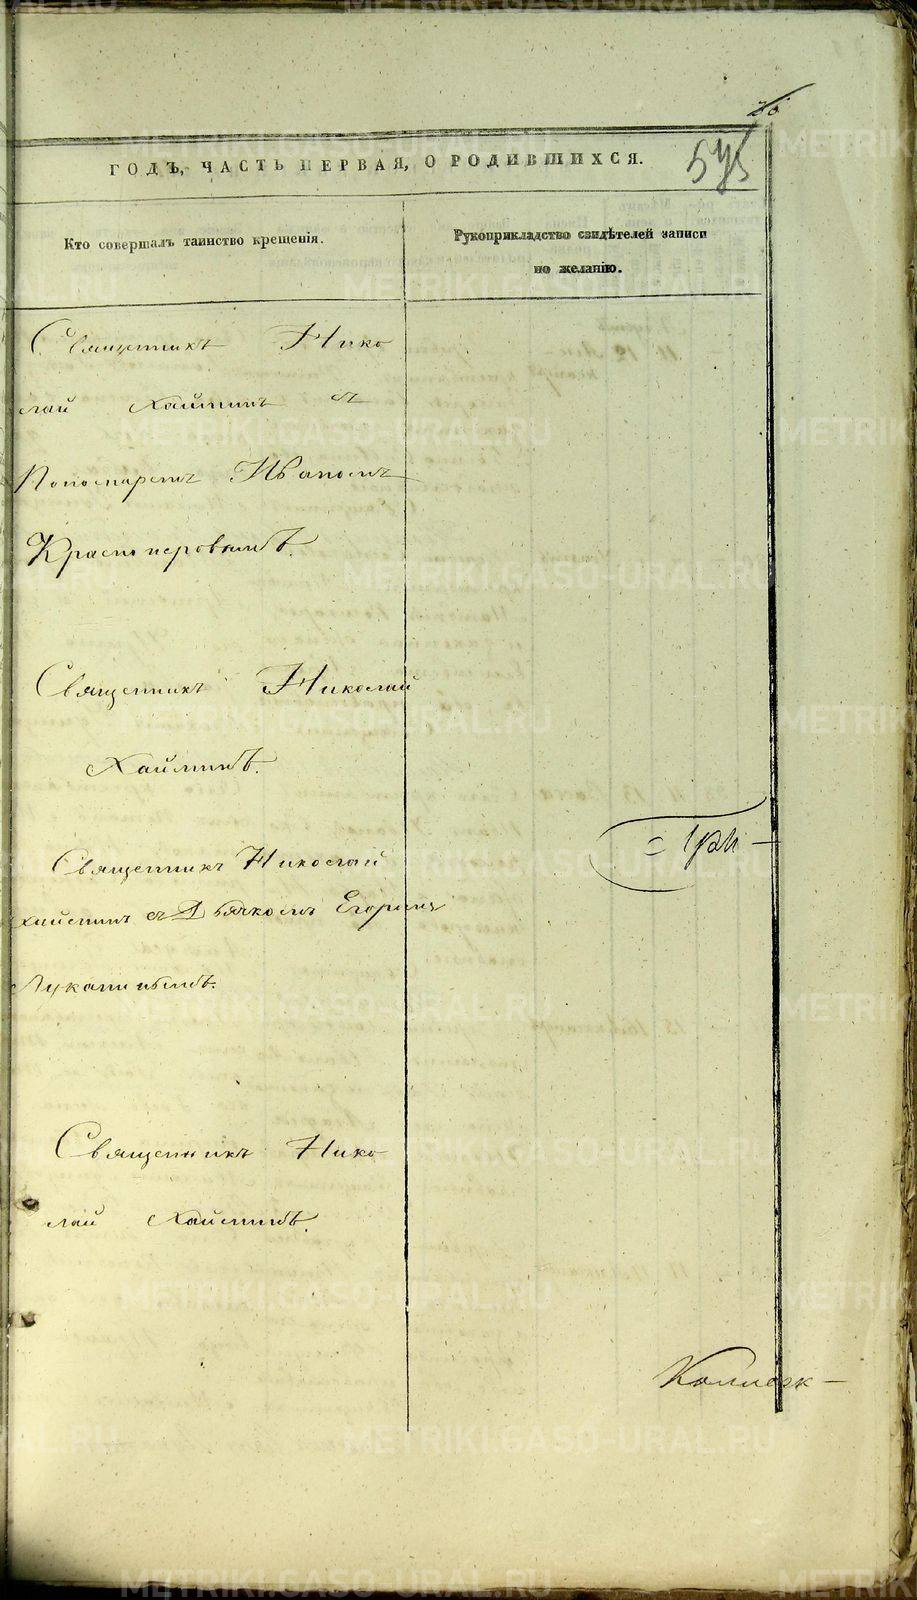 575
ГОДЪ, ЧАСТЬ ПЕРВАЯ, О РОДИВШИХСЯ.
Кто совершалъ таинство крещенія.
Рукоприкладство свидѣтелей записи
по желанію.
Священникъ Нико
лай Хаймин съ
Пономаремъ Иваномъ
Красноперовымъ.
Священникъ Николай
Хайминъ.
Священникъ Николай
Хаймин съ Дьячкомъ Егоромъ
Лукинымъ.
Священникъ Нико
лай Хайминъ.
METRIKI.GASO-URAL.RU